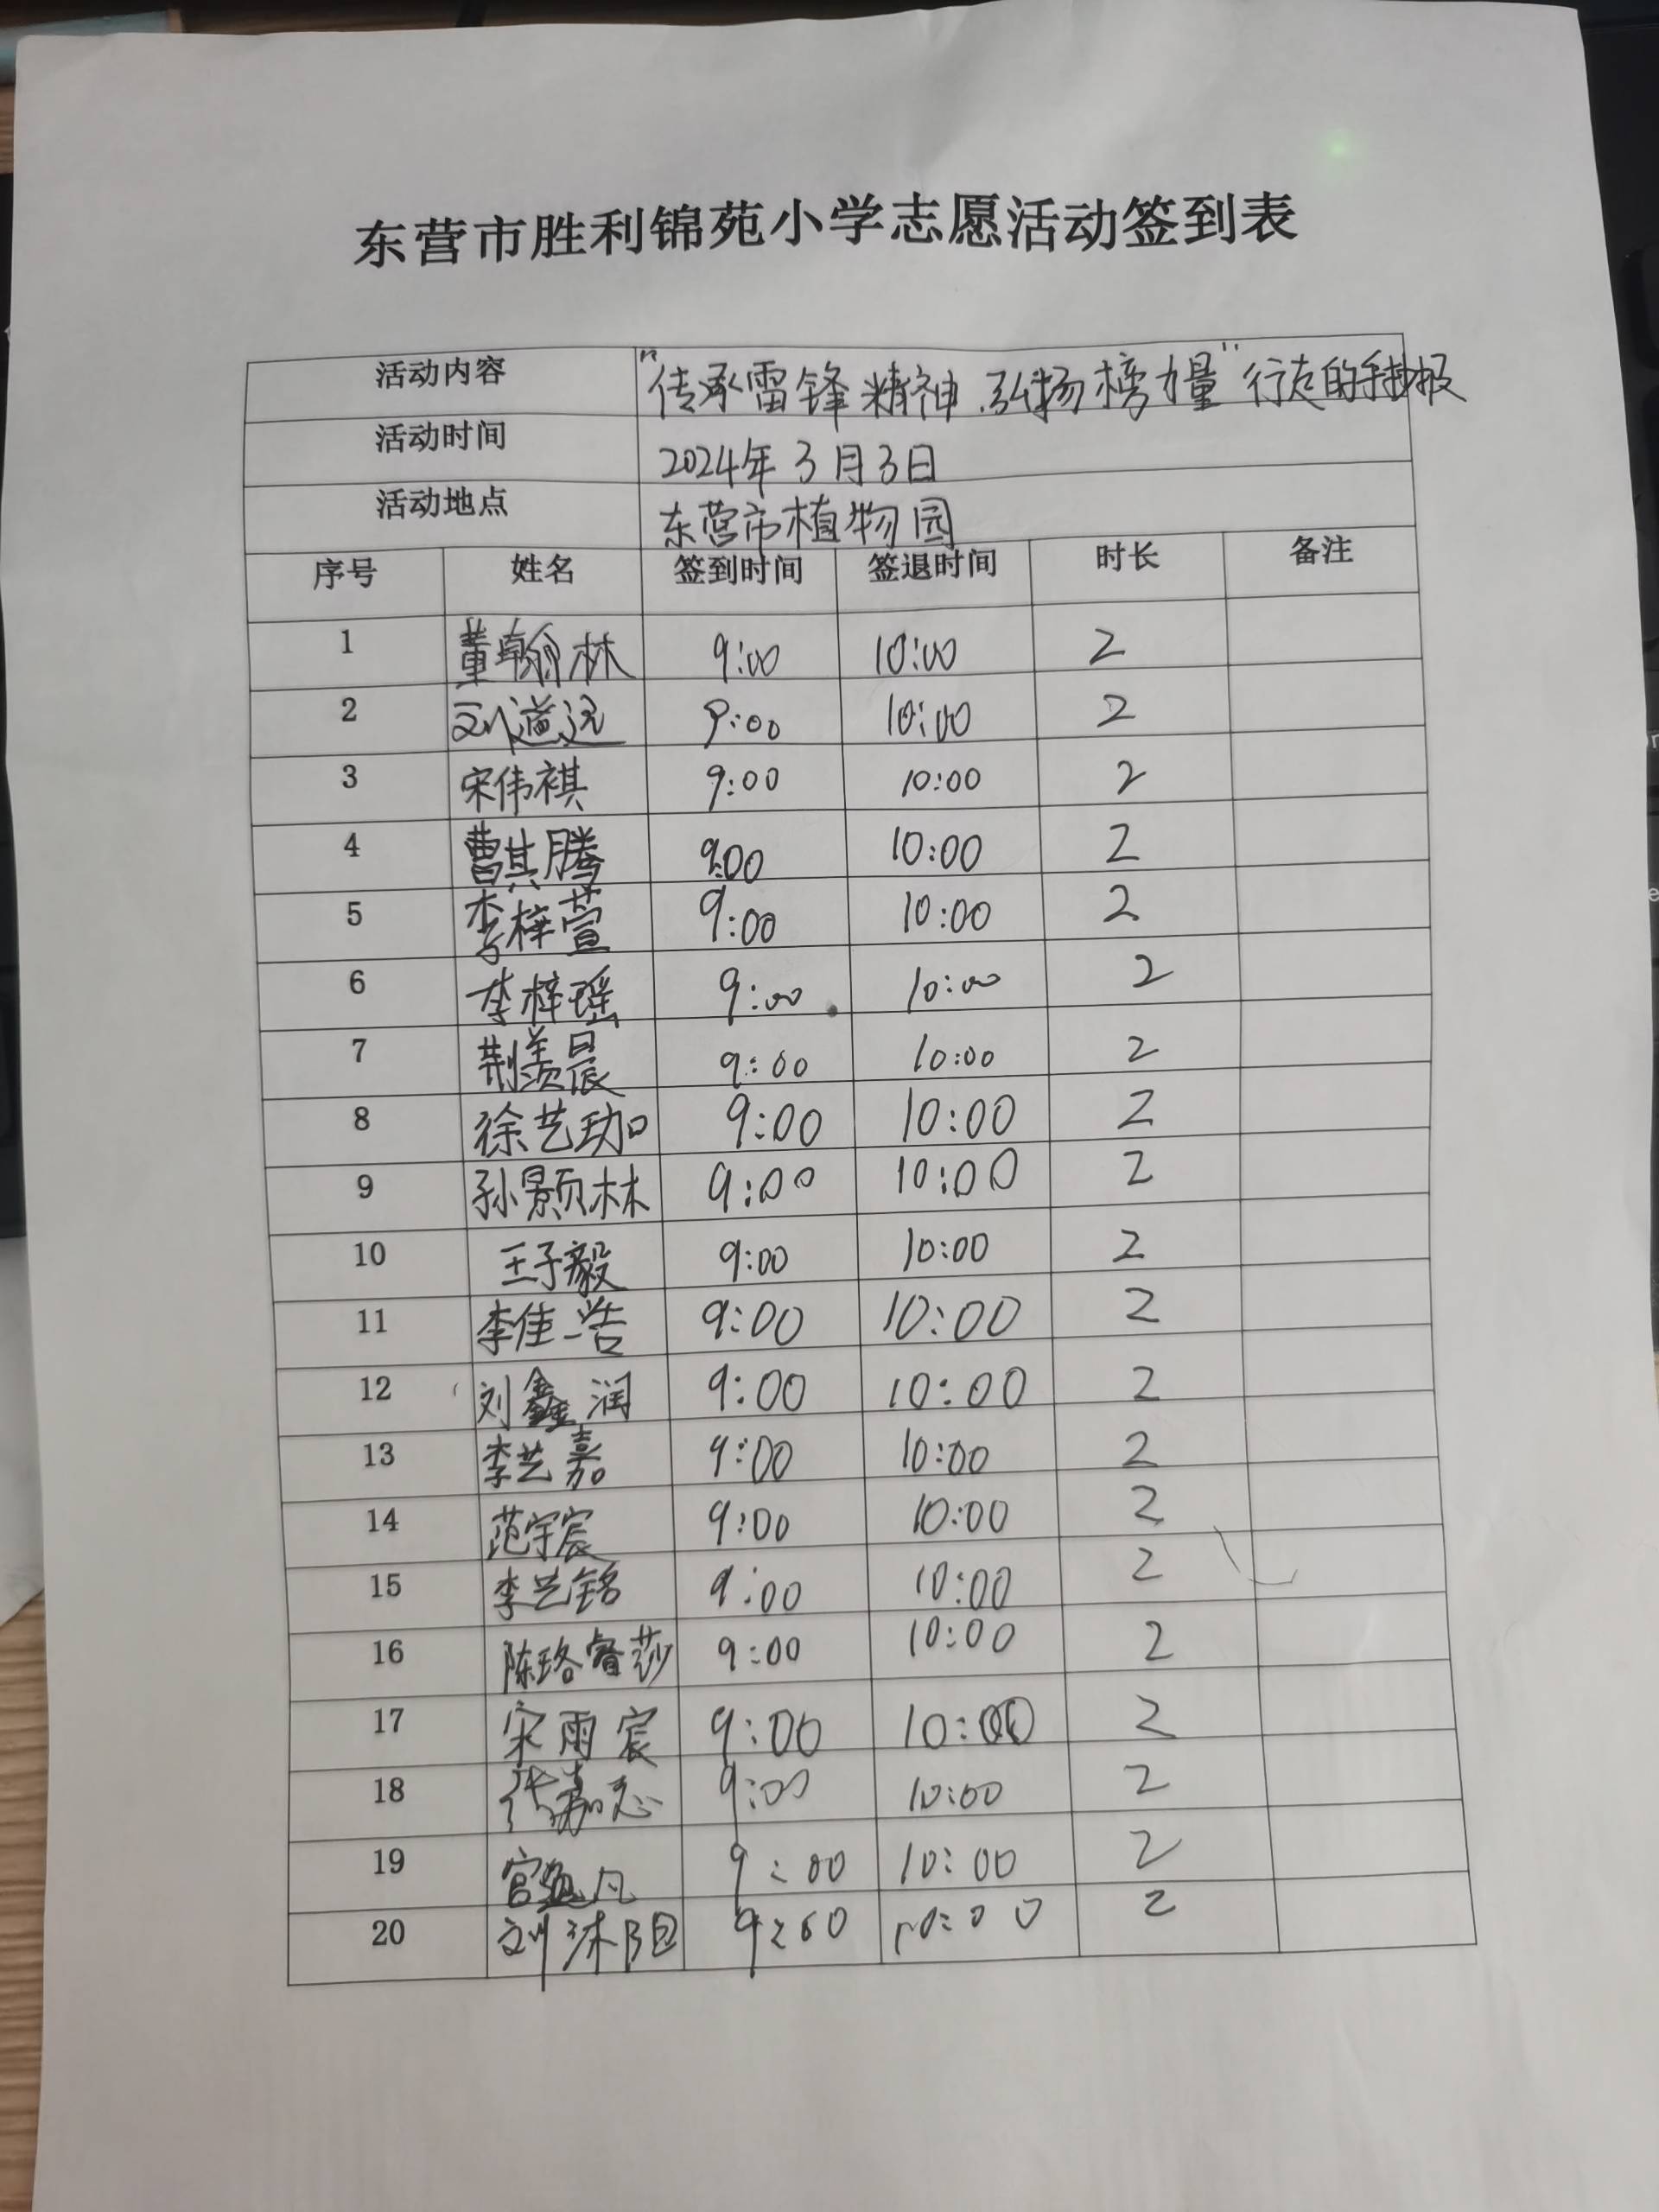 东营市胜利锦苑小学志愿活动签到表
活动内容 "传承雷锋精神.弘扬榜力量"行走的手抄报
活动时间 2024年3月3日
活动地点 东营市植物园
序号 姓名 签到时间 签退时间 时长 备注
1 董翰林 9:00 10:00 2
2 刘道远 9:00 10:00 2
3 宋伟祺 9:00 10:00 2
4 曹其腾 9:00 10:00 2
5 李梓萱 9:00 10:00 2
6 李梓瑶 9:00 10:00 2
7 荆羡晨 9:00 10:00 2
8 徐艺珈 9:00 10:00 2
9 孙颢林 9:00 10:00 2
10 王子毅 9:00 10:00 2
11 李佳浩 9:00 10:00 2
12 刘鑫润 9:00 10:00 2
13 李艺嘉 9:00 10:00 2
14 范宇宸 9:00 10:00 2
15 李艺铭 9:00 10:00 2
16 陈珞睿莎 9:00 10:00 2
17 宋雨宸 9:00 10:00 2
18 张嘉志 9:00 10:00 2
19 宫 凡 9:00 10:00 2
20 刘沐阳 9:00 10:00 2